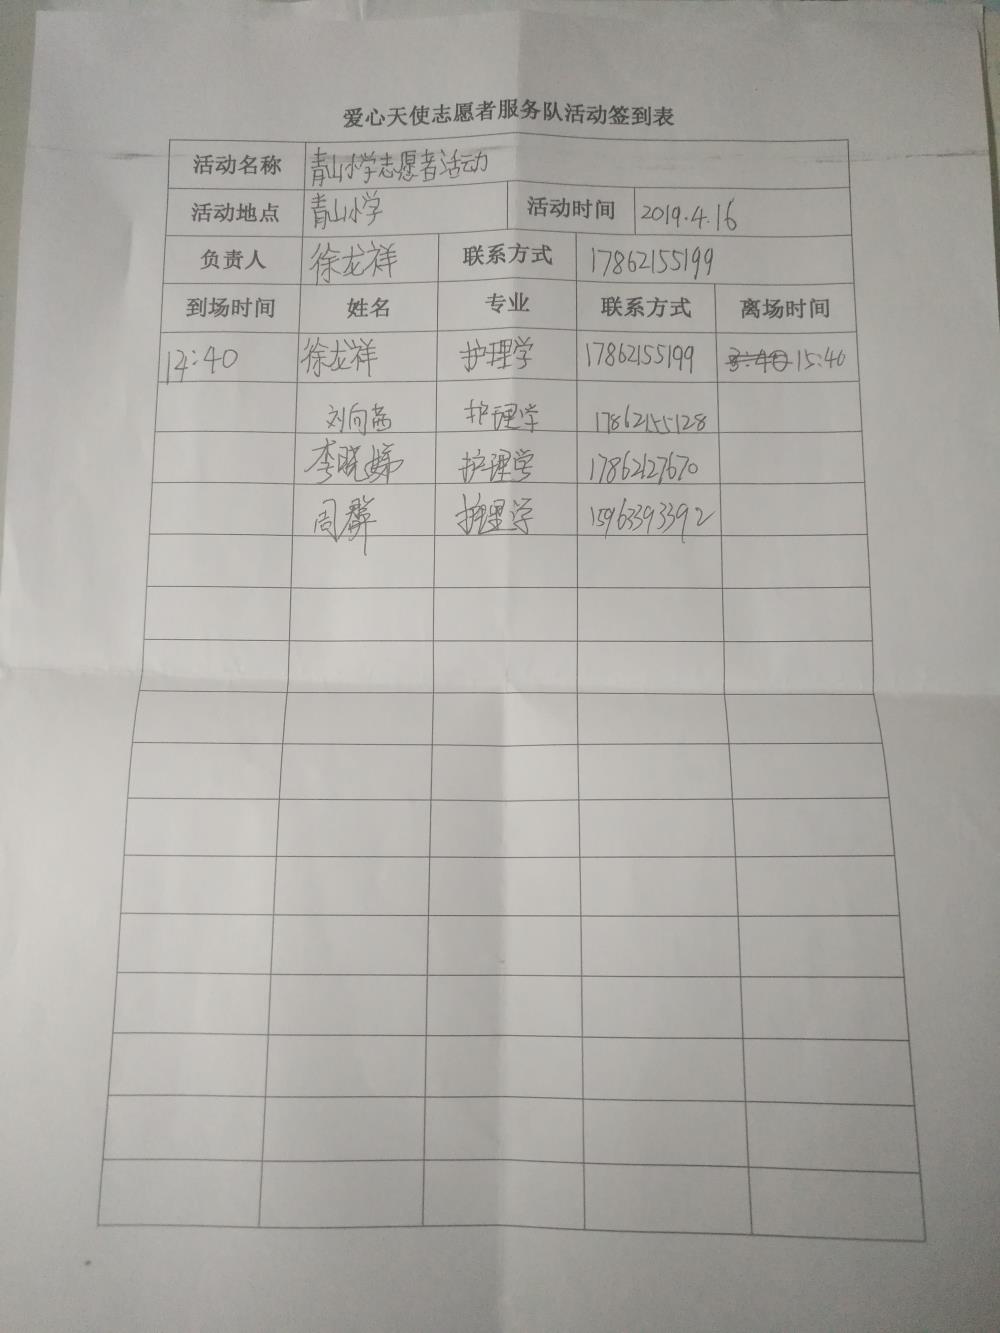 爱心天使志愿者服务队活动签到表
活动名称 青山小学志愿者活动
活动地点 青山小学 活动时间 2019.4.16
负责人 徐龙祥 联系方式 17862155199
到场时间 姓名 专业 联系方式 离场时间
14:40 徐龙祥 护理学 17862155199 15:40
刘向茜 护理学 17862155128
李晓娣 护理学 17862127670
周群 护理学 15963393392